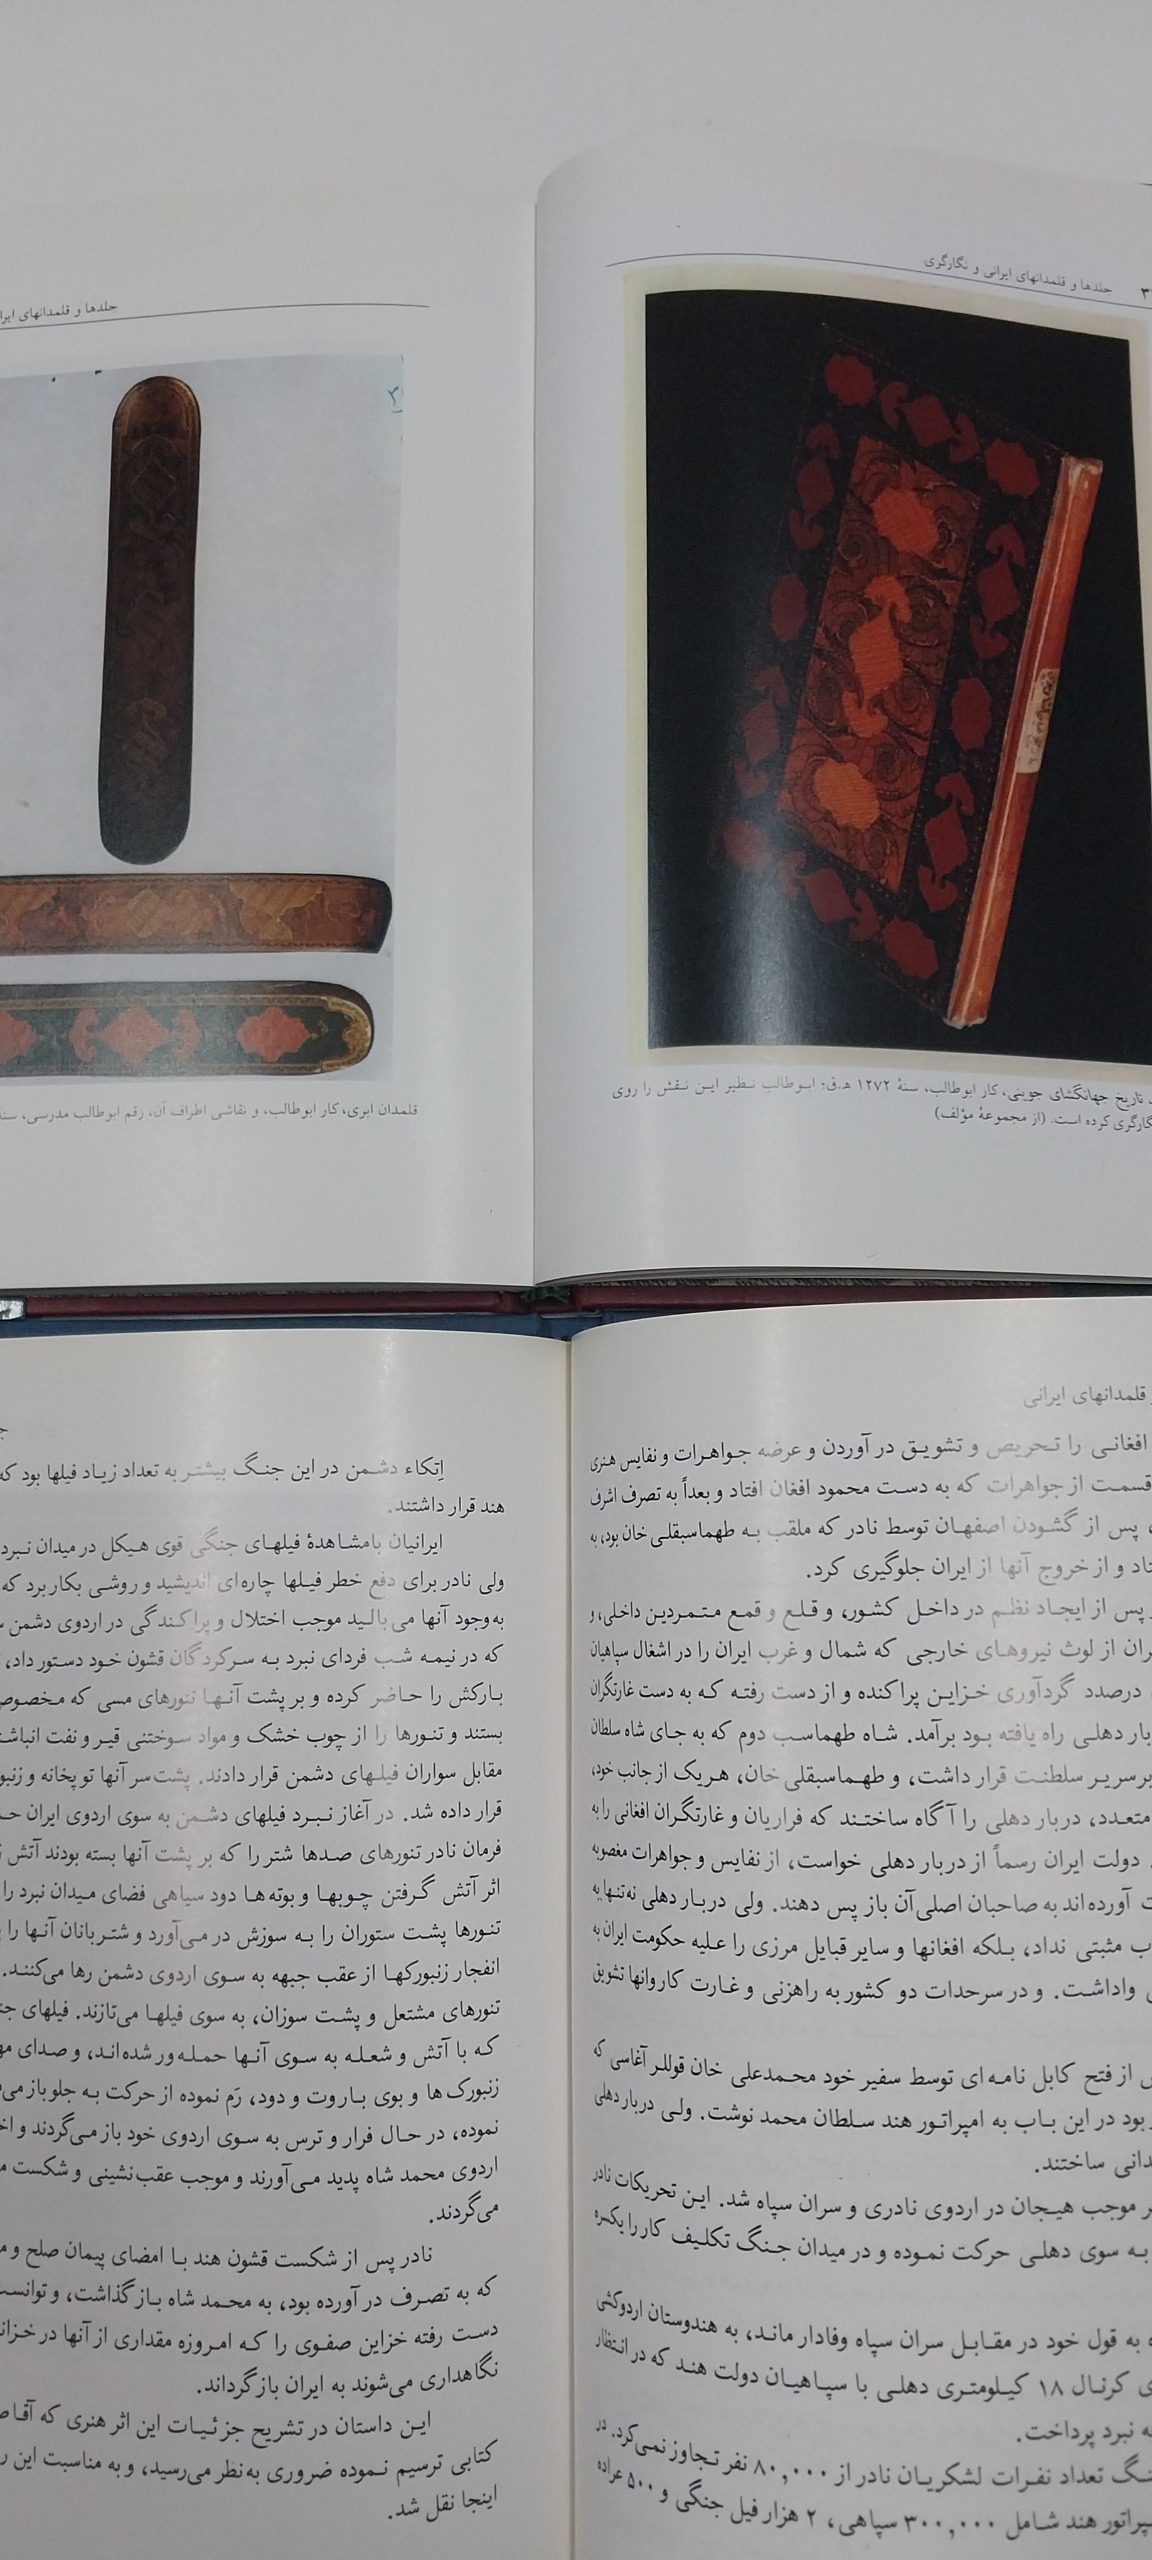 جلدها و قلمدانهای ایرانی و نگارگری
تاریخ جهانگشای جوینی، کار ابوطالب، سنهٔ ۱۲۷۲ ه‍.ق؛ ابوطالب نظیر این نقش را روی
کرده است. (از مجموعهٔ مؤلف)
جلدها و قلمدانهای
قلمدان ابری، کار ابوطالب، و نقاشی اطراف آن، رقم ابوطالب مدرسی،
قلمدانهای ایرانی
افغانی را تحریص و تشویق در آوردن و عرضه جواهرات و نفایس هنری
قسمت از جواهرات که به دست محمود افغان افتاد و بعداً به تصرف اشرف
پس از گشودن اصفهان توسط نادر که ملقب به طهماسبقلی خان بود، به
و از خروج آنها از ایران جلوگیری کرد.
پس از ایجاد نظم در داخل کشور، و قلع و قمع متمردین داخلی، و
از لوث نیروهای خارجی که شمال و غرب ایران را در اشغال سپاهیان
درصدد گردآوری خزاین پراکنده و از دست رفته که به دست غارتگران
دهلی راه یافته بود برآمد. شاه طهماسب دوم که به جای شاه سلطان
برسریر سلطنت قرار داشت، و طهماسبقلی خان، هریک از جانب خود،
متعدد، دربار دهلی را آگاه ساختند که فراریان و غارتگران افغانی را به
دولت ایران رسماً از دربار دهلی خواست، از نفایس و جواهرات مغصوبه
آورده‌اند به صاحبان اصلی آن باز پس دهند. ولی دربار دهلی نه‌تنها به
مثبتی نداد، بلکه افغانها و سایر قبایل مرزی را علیه حکومت ایران به
واداشت. و در سرحدات دو کشور به راهزنی و غارت کاروانها تشویق
از فتح کابل نامه‌ای توسط سفیر خود محمدعلی خان قوللر آغاسی که
بود در این باب به امپراتور هند سلطان محمد نوشت. ولی دربار دهلی
ساختند.
موجب هیجان در اردوی نادری و سران سپاه شد. این تحریکات نادر
به سوی دهلی حرکت نموده و در میدان جنگ تکلیف کار را یکسره
به قول خود در مقابل سران سپاه وفادار ماند، به هندوستان اردوکشی
کرنال ۱۸ کیلومتری دهلی با سپاهیان دولت هند که در انتظار
نبرد پرداخت.
تعداد نفرات لشکریان نادر از ۸۰,۰۰۰ نفر تجاوز نمی‌کرد. در
هند شامل ۳۰۰,۰۰۰ سپاهی، ۲ هزار فیل جنگی و ۵۰۰ عراده
اِتکاء دشمن در این جنگ بیشتر به تعداد زیاد فیلها بود که
هند قرار داشتند.
ایرانیان بامشاهدهٔ فیلهای جنگی قوی هیکل در میدان نبرد
ولی نادر برای دفع خطر فیلها چاره‌ای اندیشید و روشی بکار برد که
به‌وجود آنها می‌بالید موجب اختلال و پراکندگی در اردوی دشمن
که در نیمه شب فردای نبرد به سرکردگان قشون خود دستور داد،
بارکش را حاضر کرده و بر پشت آنها تنورهای مسی که مخصوص
بستند و تنورها را از چوب خشک و مواد سوختنی قیر و نفت
مقابل سواران فیلهای دشمن قرار دادند. پشت‌سر آنها توپخانه و
قرار داده شد. در آغاز نبرد فیلهای دشمن به سوی اردوی ایران
فرمان نادر تنورهای صدها شتر را که بر پشت آنها بسته بودند آتش
اثر آتش گرفتن چوبها و بوته‌ها دود سیاهی فضای میدان نبرد را
تنورها پشت ستوران را به سوزش در می‌آورد و شتربانان آنها را
انفجار زنبورکها از عقب جبهه به سوی اردوی دشمن رها می‌کنند.
تنورهای مشتعل و پشت سوزان، به سوی فیلها می‌تازند. فیلهای
که با آتش و شعله به سوی آنها حمله‌ور شده‌اند، و صدای
زنبورک‌ها و بوی باروت و دود، رَم نموده از حرکت به جلو باز
نموده، در حال فرار و ترس به سوی اردوی خود باز می‌گردند و
اردوی محمد شاه پدید می‌آورند و موجب عقب‌نشینی و شکست
می‌گردند.
نادر پس از شکست قشون هند با امضای پیمان صلح و
که به تصرف در آورده بود، به محمد شاه باز گذاشت، و
دست رفته خزاین صفوی را که امروزه مقداری از آنها در
نگاهداری می‌شوند به ایران بازگرداند.
این داستان در تشریح جزئیات این اثر هنری که
کتابی ترسیم نموده ضروری به‌نظر می‌رسید، و به مناسبت این
اینجا نقل شد.